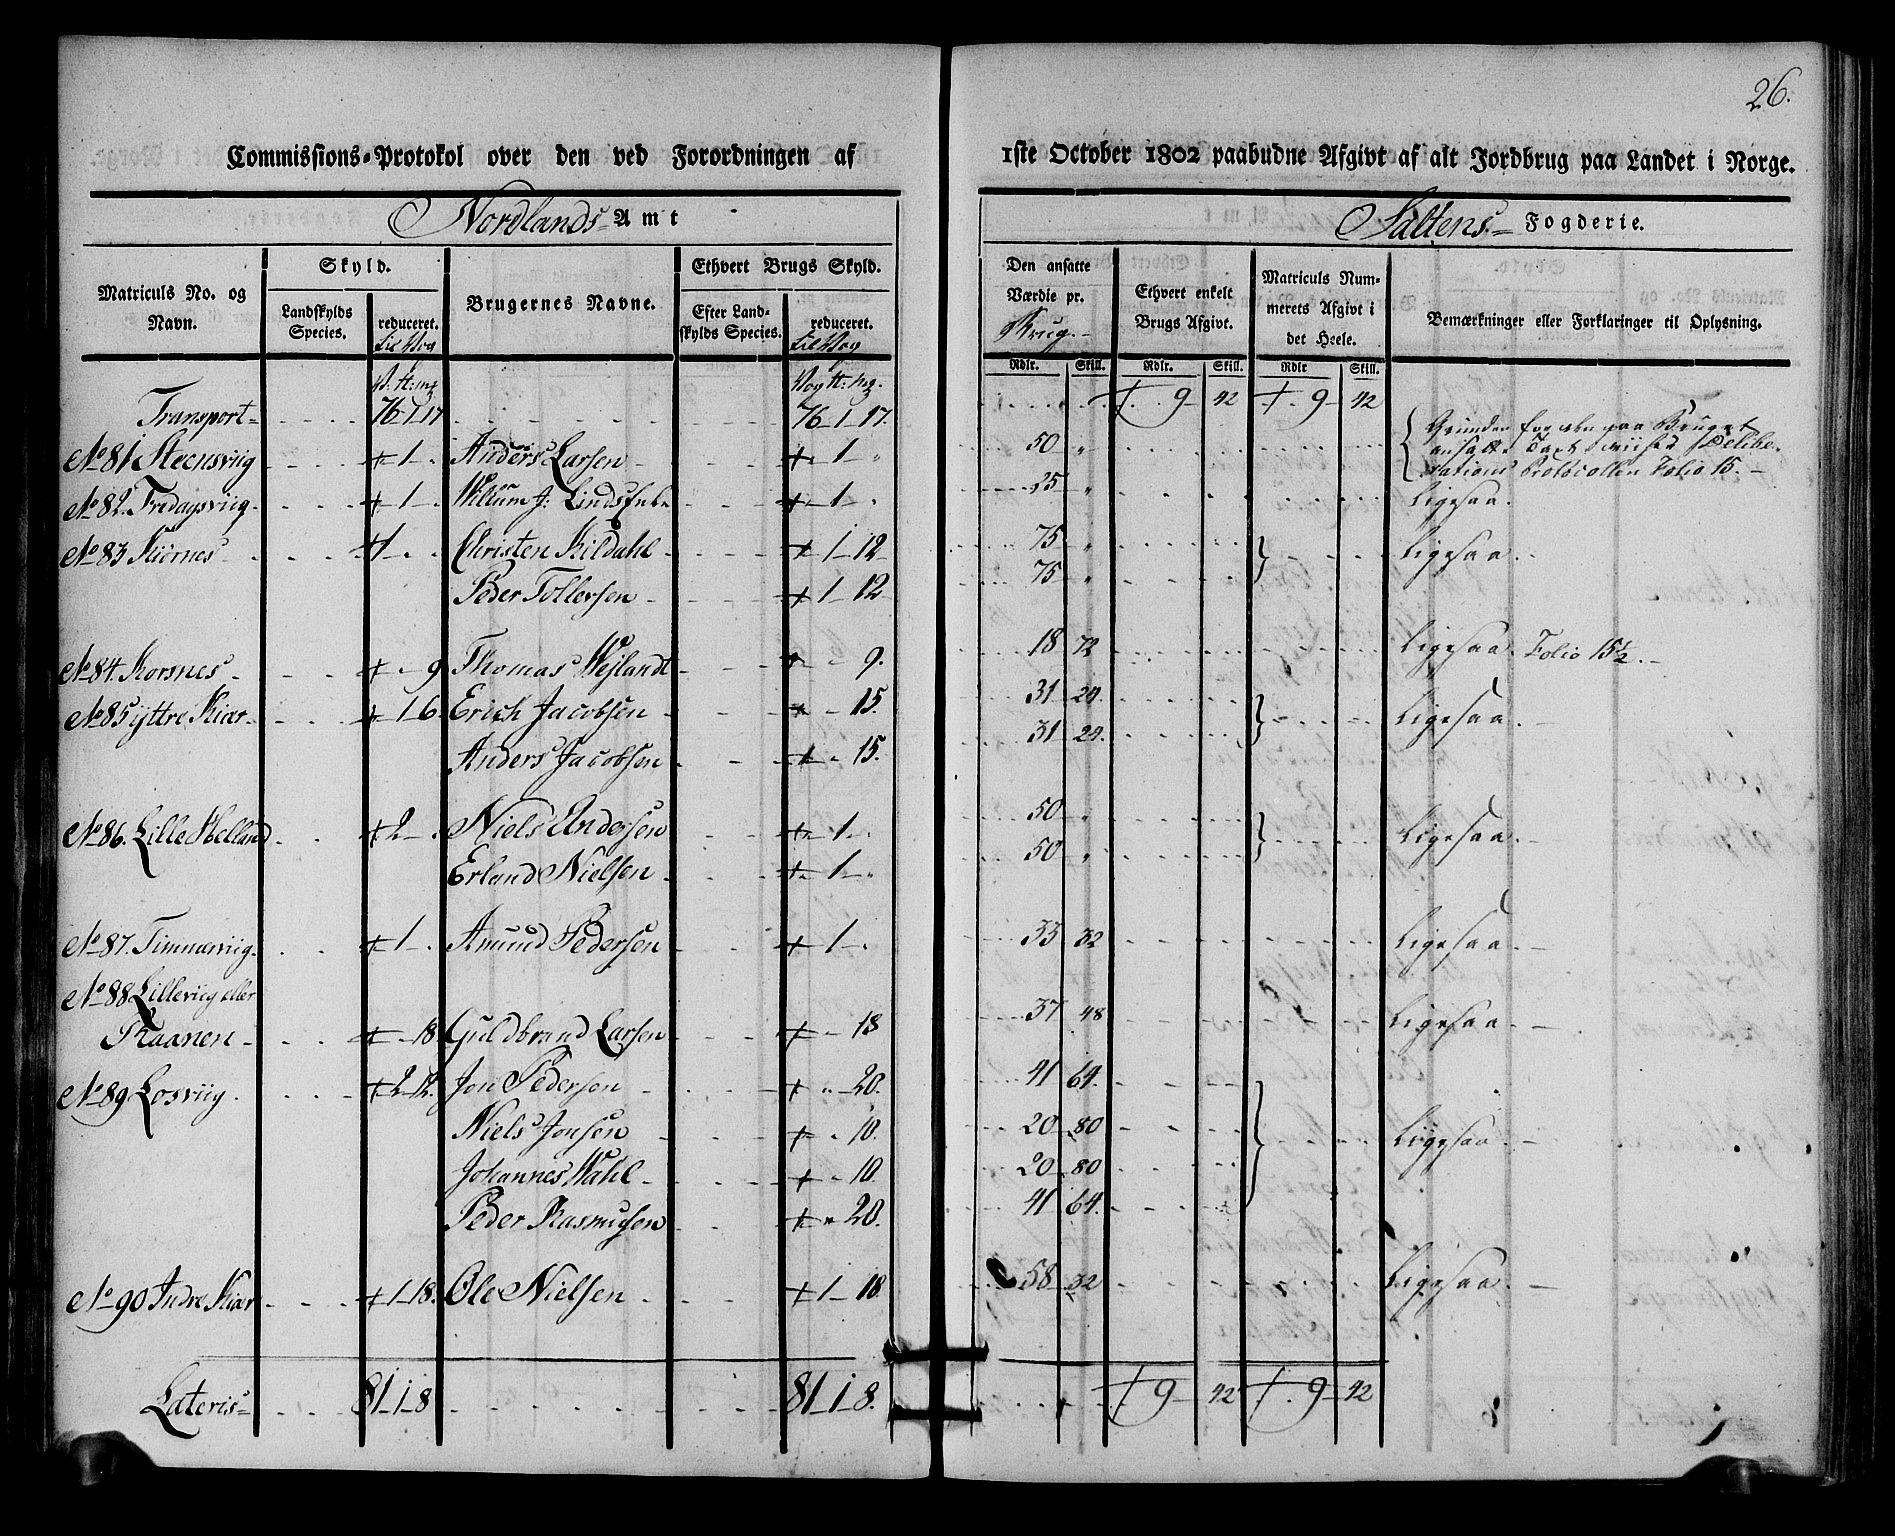 26.
Commissions-Protokol over den ved Forordningen af 1ste October 1802 paabudne Afgivt af alt Jordbrug paa Landet i Norge.
Nordlands Amt
Saltens Fogderie.
Matriculs No. og Navn.
Skyld.
Landskylds Species.
reduceret.
til Vog
Brugernes Navne.
Ethvert Brugs Skyld.
Efter Landskylds Species.
reduceret.
til Vog
Den ansatte Værdie pr. Brug.
Ethvert enkelt Brugs Afgivt.
Matriculs Nummerets Afgivt i det Heele.
Bemærkninger eller Forklaringer til Oplysning.
Rdlr. Skill. Rdlr. Skill. Rdlr Skill.
Transport 76 1 17 76 1 17. 9 42 9 42
No 81 Steensviig 1 Anders Larsen 1 50 Grunden for den paa Bruget
ansatte Taxt Delibe-
rations Protocollen Folio 15.
No 82. Fredagsviig 1 Willum J: 1 25 Ligesaa.
No 83 Kiörnes Christen Kildahl 1 12 75 Ligesaa
Peder Tollefsen 1 12 75
No 84. Korsnes 9 Thomas Weylandt 9. 18 72 Ligesaa Folio 15½.
No 85 yttre Kiær 1 6. Erich Jacobsen 15. 31 24. Ligesaa.
Anders Jacobsen 15. 31 24.
No 86. Lille Helland 2 Niels Andersen 1 50 Ligesaa.
Erland Nielsen 1 50
No 87. Timmerviig 1 Amund Pedersen 1 33 32 Ligesaa.
No 88 Lilleviig eller
Raanen 18. Guldbrand Larsen 18 37 48 Ligesaa.
No 89 Losviig 2 12. Jon Pedersen 20. 41 64. Ligesaa
Niels Jonsen 10. 20 80
Johannes Wahl 10. 20 80
Peder Rasmussen 20. 41 64.
No 90 Indre Kiær 1 18. Ole Nielsen 1 18. 58 32 Ligesaa.
Lateris 81 1 8 81 1 8. 9 42 9 42